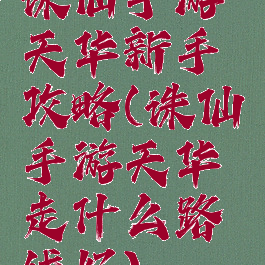 诛仙手游
天华新手
攻略(诛仙
手游天华
走什么路
线好)